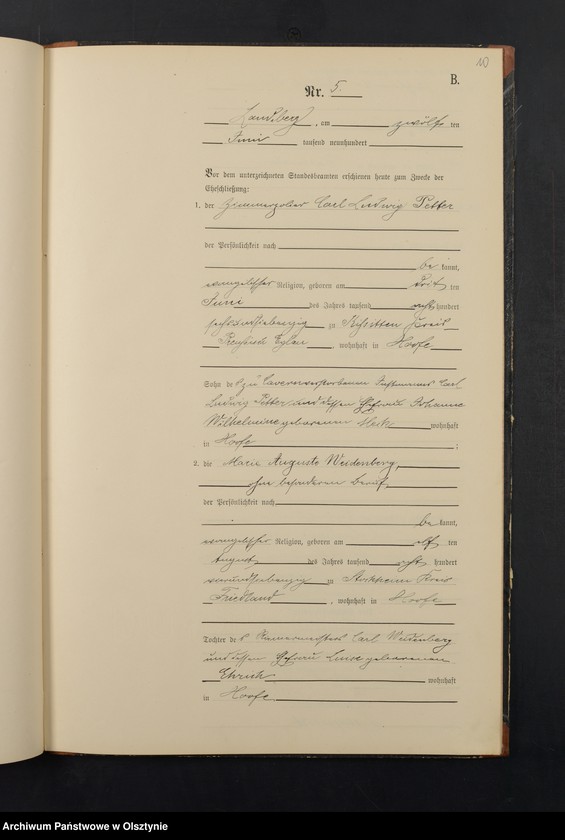 10
B.
Nr. 5.
Landsberg, am zwölften
Juni tausend neunhundert
Vor dem unterzeichneten Standesbeamten erschienen heute zum Zwecke der
Eheschließung:
1. der Carl Ludwig Petter
der Persönlichkeit nach
bekannt,
evangelischer Religion, geboren am dritten
Juni des Jahres tausend acht hundert
sechsundsiebenzig zu Kreis
Preußisch Eylau, wohnhaft in Hoofe
Sohn des zu verstorbenen Carl
Ludwig Petter und dessen Ehefrau Johanne
Wilhelmine geborenen wohnhaft
in Hoofe;
2. die Marie Auguste Weidenberg,
ohne besonderen Beruf,
der Persönlichkeit nach
bekannt,
evangelischer Religion, geboren am elften
August des Jahres tausend acht hundert
vierundsiebenzig zu Stockheim Kreis
Friedland, wohnhaft in Hoofe
Tochter des Carl Weidenberg
und dessen Ehefrau Luise geborenen
Ehrich wohnhaft
in Hoofe
Archiwum Państwowe w Olsztynie